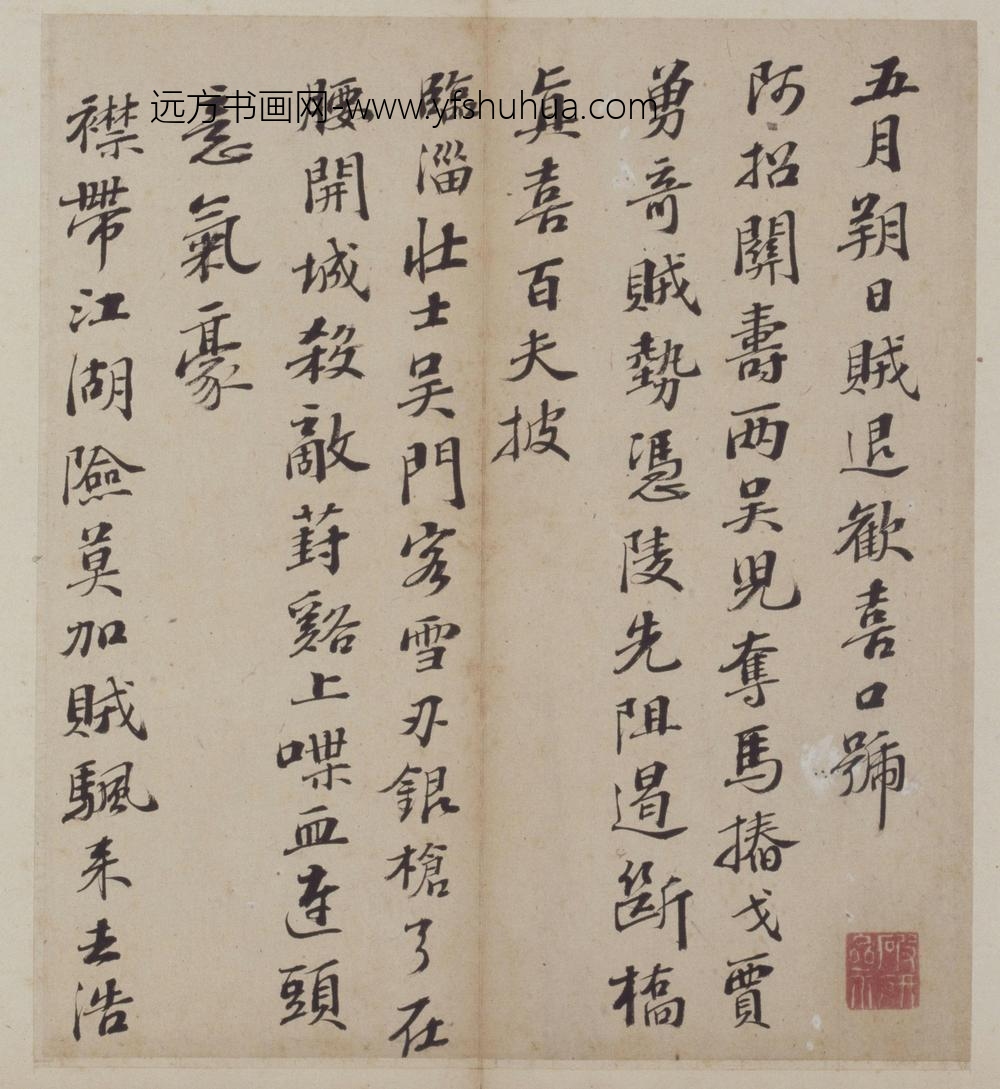 五月朔日賊退歡喜口號
阿招關壽两吴児奪馬摏戈賈
勇奇賊勢憑陵先阻遏斷橋
真喜百夫披
臨淄壮士吴門客雪刃銀槍了在
腰開城殺敵葑谿上喋血連頭
意氣豪
襟帶江湖險莫加賊颿来去浩
远方书画网-www.yfshuhua.com